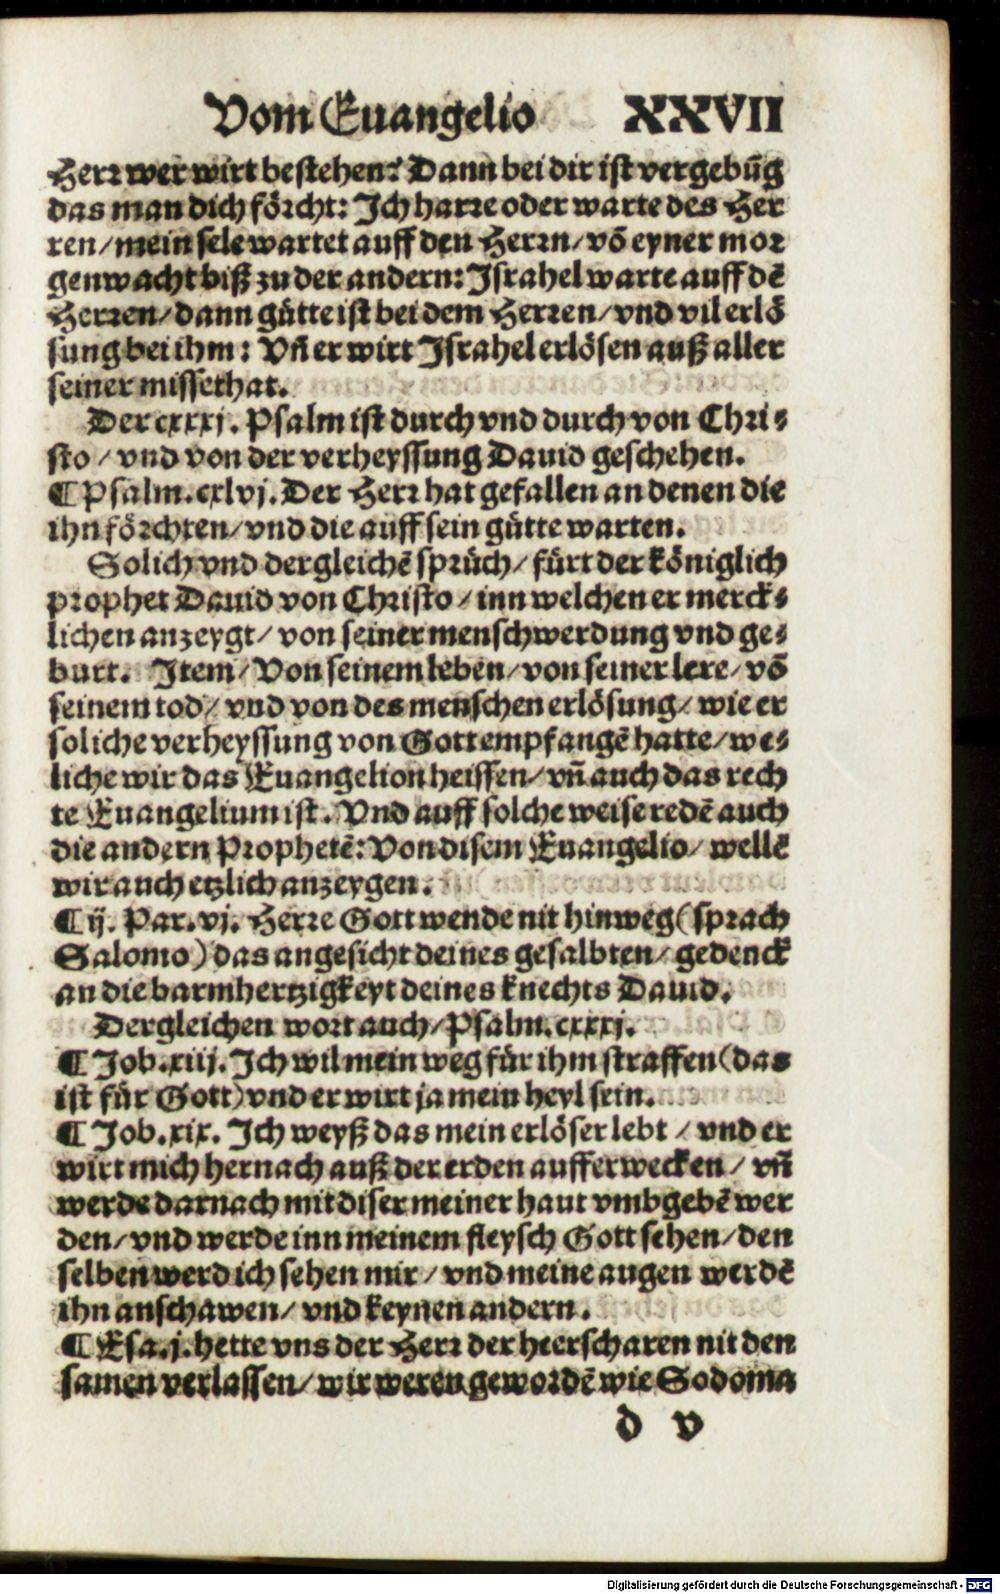 Vom Euangelio XXVII
Herr wer wirt bestehen? Dann bei dir ist vergebũg
das man dich förcht: Ich harre oder warte des Her
ren/ mein sele wartet auff den Herrn/ võ eyner mor
genwacht biß zu der andern: Israhel warte auff dẽ
Herren/ dann gütte ist bei dem Herren/ vnd vil erlö
sung bei ihm: Vñ er wirt Israhel erlösen auß aller
seiner missethat.
Der cxxxj. Psalm ist durch vnd durch von Chri⸗
sto/ vnd von der verheyssung Dauid geschehen.
¶ Psalm. cxlvj. Der Herr hat gefallen an denen die
ihn förchten/ vnd die auff sein gütte warten.
Solich vnd dergleichẽ sprüch/ fürt der königlich
prophet Dauid von Christo/ inn welchen er merck⸗
lichen anzeygt/ von seiner menschwerdung vnd ge⸗
burt. Item/ Von seinem leben/ von seiner lere/ võ
seinem tod/ vnd von des menschen erlösung/ wie er
soliche verheyssung von Gott empfangẽ hatte/ we⸗
liche wir das Euangelion heissen/ vñ auch das rech
te Euangelium ist. Vnd auff solche weise redẽ auch
die andern Prophetẽ: Von disem Euangelio/ wellẽ
wir auch etzlich anzeygen.
¶ ij. Par. vj. Herre Gott wende nit hinweg (sprach
Salomo) das angesicht deines gesalbten/ gedenck
an die barmhertzigkeyt deines knechts Dauid.
Dergleichen wort auch/ Psalm. cxxxj.
¶ Job. xiij. Ich wil mein weg für ihm straffen (das
ist für Gott) vnd er wirt ja mein heyl sein.
¶ Job. xix. Ich weyß das mein erlöser lebt/ vnd er
wirt mich hernach auß der erden aufferwecken/ vñ
werde darnach mit diser meiner haut vmbgebẽ wer
den/ vnd werde inn meinem fleysch Gott sehen/ den
selben werd ich sehen mir/ vnd meine augen werdẽ
ihn anschawen/ vnd keynen andern.
¶ Esa. j. hette vns der Herr der heerscharen nit den
samen verlassen/ wir weren gewordẽ wie Sodoma
d v
Digitalisierung gefördert durch die Deutsche Forschungsgemeinschaft - DFG